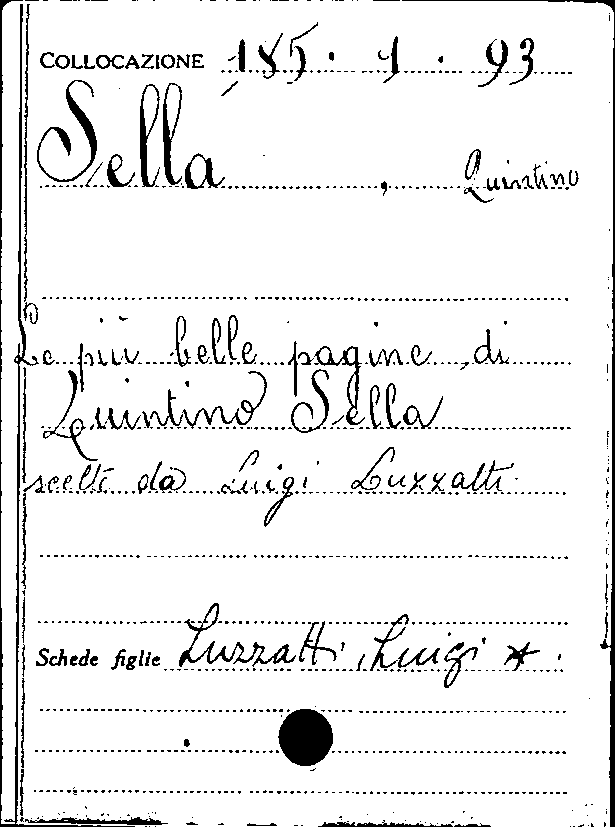 COLLOCAZIONE 185. 1. 93
Sella, Quintino
Le più belle pagine di
Quintino Sella
scelte da Luigi Luzzatti.
Schede figlie Luzzatti, Luigi *.